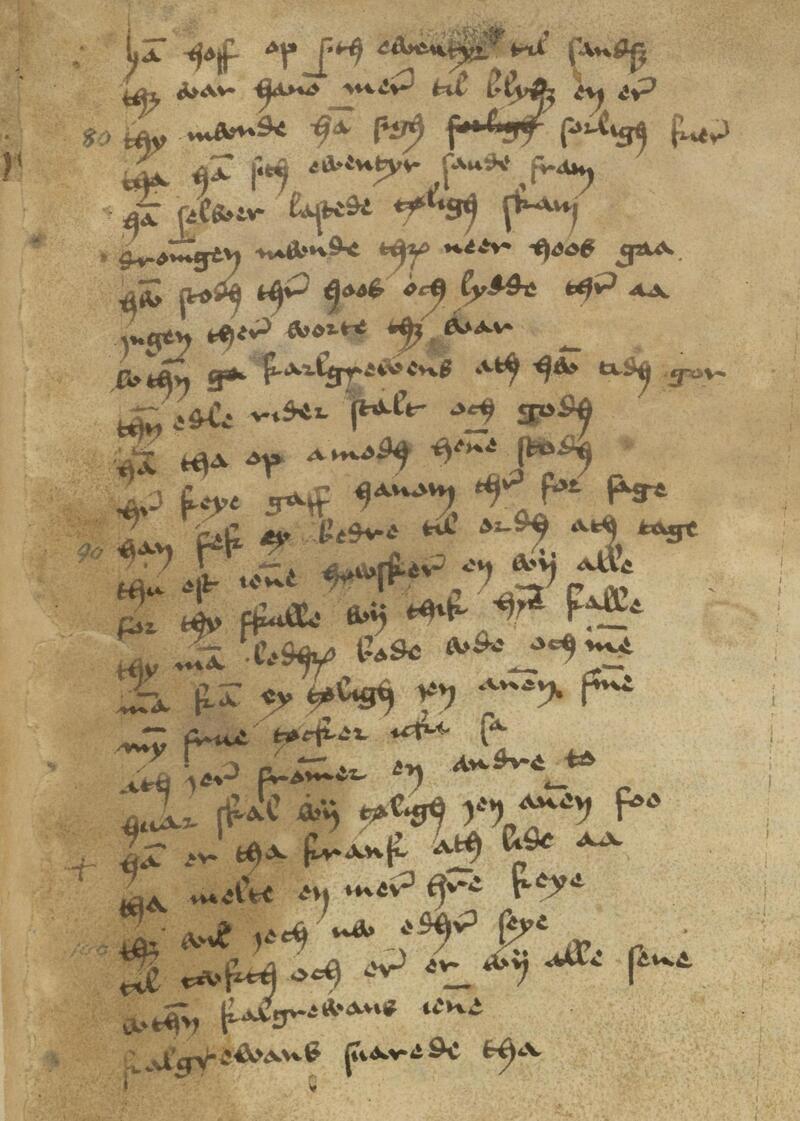 hā hoff op sith ewentyr til sandꝫ
thꝫ war hanō mer̄ til blyꝫ en er̄
80 thy mwnde hā sigh sorligh sorligh kier̄
tha hā sith ewentyr sande fram
hā selwer lastede tøligh skam
dron̄gen mwnde thr̄ neer hoos gaa
hw̄ stodh thr̄ hoos och lydde thr̄ aa
jngen ther̄ worte thꝫ war
wthn̄ ga karlgrewens ath hw̄ tidh gør
thn̄ edle rider stalt och godh
hā tha op amodh hen̄e stodh
hr̄ keye gaff hanom thr̄ for sage
90 han fek ey bedre til ordh ath tage
thu est ien̄e høwsker̄ en wij alle
for thy skulle wij thik hyr̄e kalle
thy mā ledhr̄ bode wde och in̄e
mā kā ey tøligh jen anēn fin̄e
my frue tøcker icke sa
ath jer̄ from̄er en andre to
huar skal wij tøligh jen anēn foo
+ hā er tha krank ath lide aa
tha melte en mer̄ hr̄e keye
100 thꝫ wil jech nw edhr̄ seye
til twkth och er̄ er wij alle sene
wthn̄ kalgrewans ien̄e
kalgrewans suarede tha